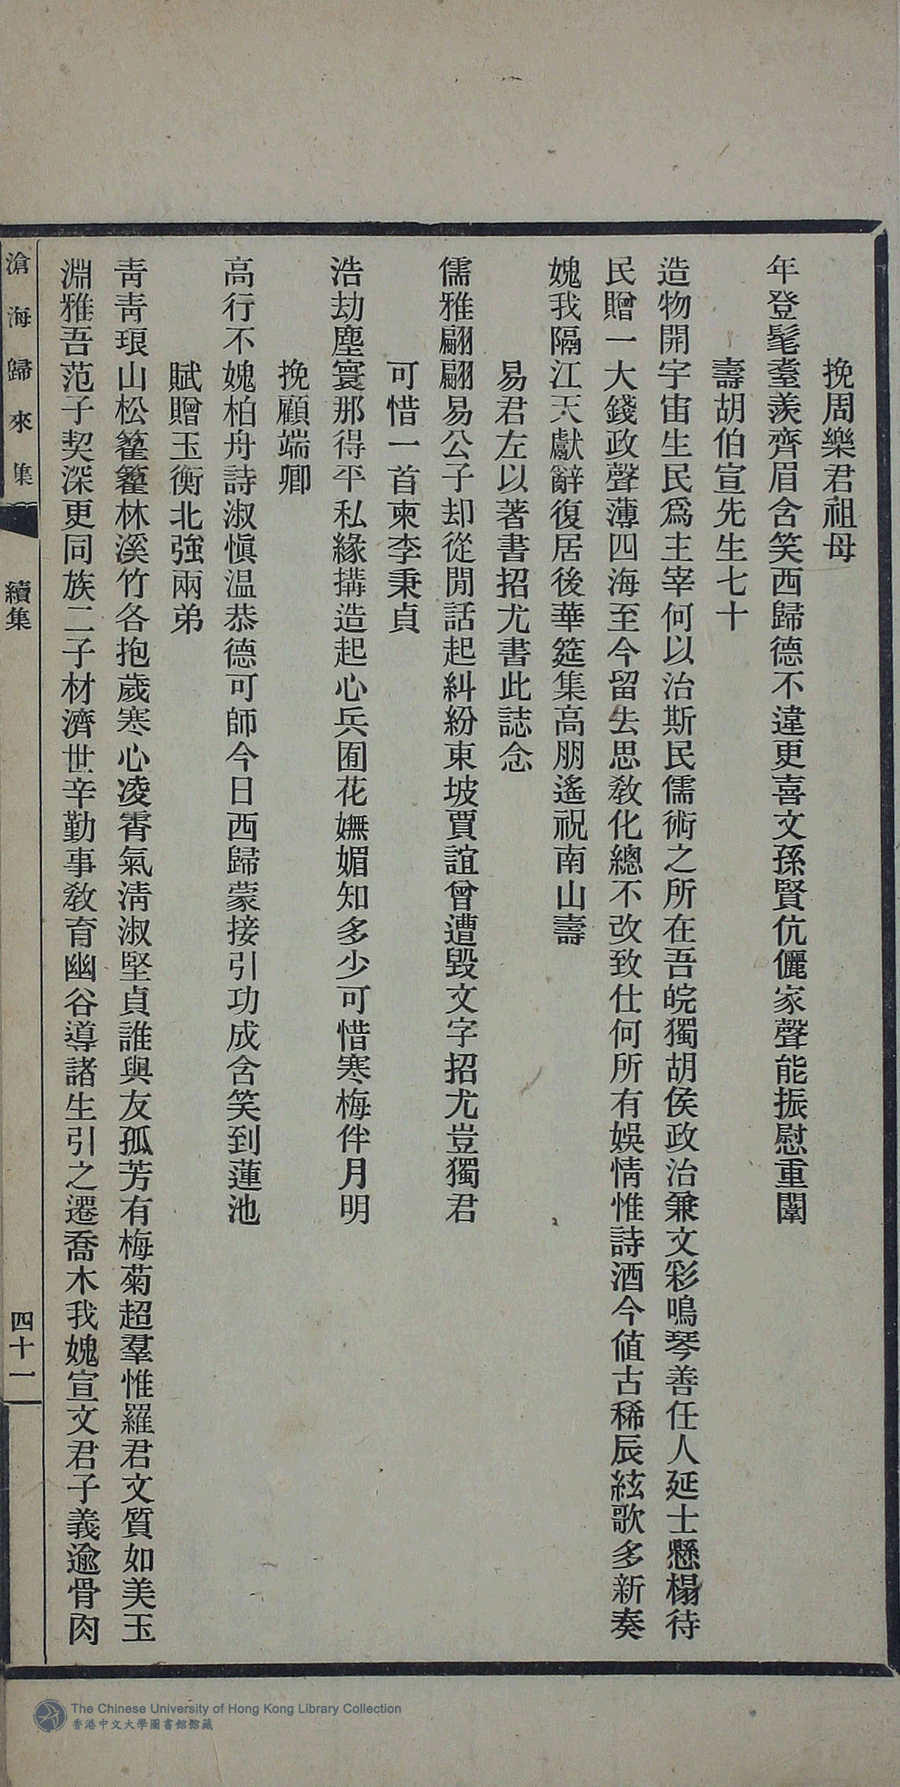 挽周樂君祖母
年登髦耋羨齊眉含笑西歸德不違更喜文孫賢伉儷家聲能振慰重闈
壽胡伯宣先生七十
造物開宇宙生民爲主宰何以治斯民儒術之所在吾皖獨胡侯政治兼文彩鳴琴善任人延士懸榻待
民贈一大錢政聲薄四海至今留去思教化總不改致仕何所有娛情惟詩酒今値古稀辰絃歌多新奏
媿我隔江天獻辭復居後華筵集高朋遙祝南山壽
易君左以著書招尤書此誌念
儒雅翩翩易公子却從閒話起糾紛東坡賈誼曾遭毀文字招尤豈獨君
可惜一首柬李秉貞
浩劫塵寰那得平私緣搆造起心兵囿花嫵媚知多少可惜寒梅伴月明
挽顧端卿
高行不媿柏舟詩淑愼温恭德可師今日西歸蒙接引功成含笑到蓮池
賦贈玉衡北強兩弟
靑靑琅山松籊籊林溪竹各抱歲寒心凌霄氣淸淑堅貞誰與友孤芳有梅菊超羣惟羅君文質如美玉
淵雅吾范子契深更同族二子材濟世辛勤事敎育幽谷導諸生引之遷喬木我媿宣文君子義逾骨肉
滄海歸來集
續集
四十一
The Chinese University of Hong Kong Library Collection
香港中文大學圖書館館藏